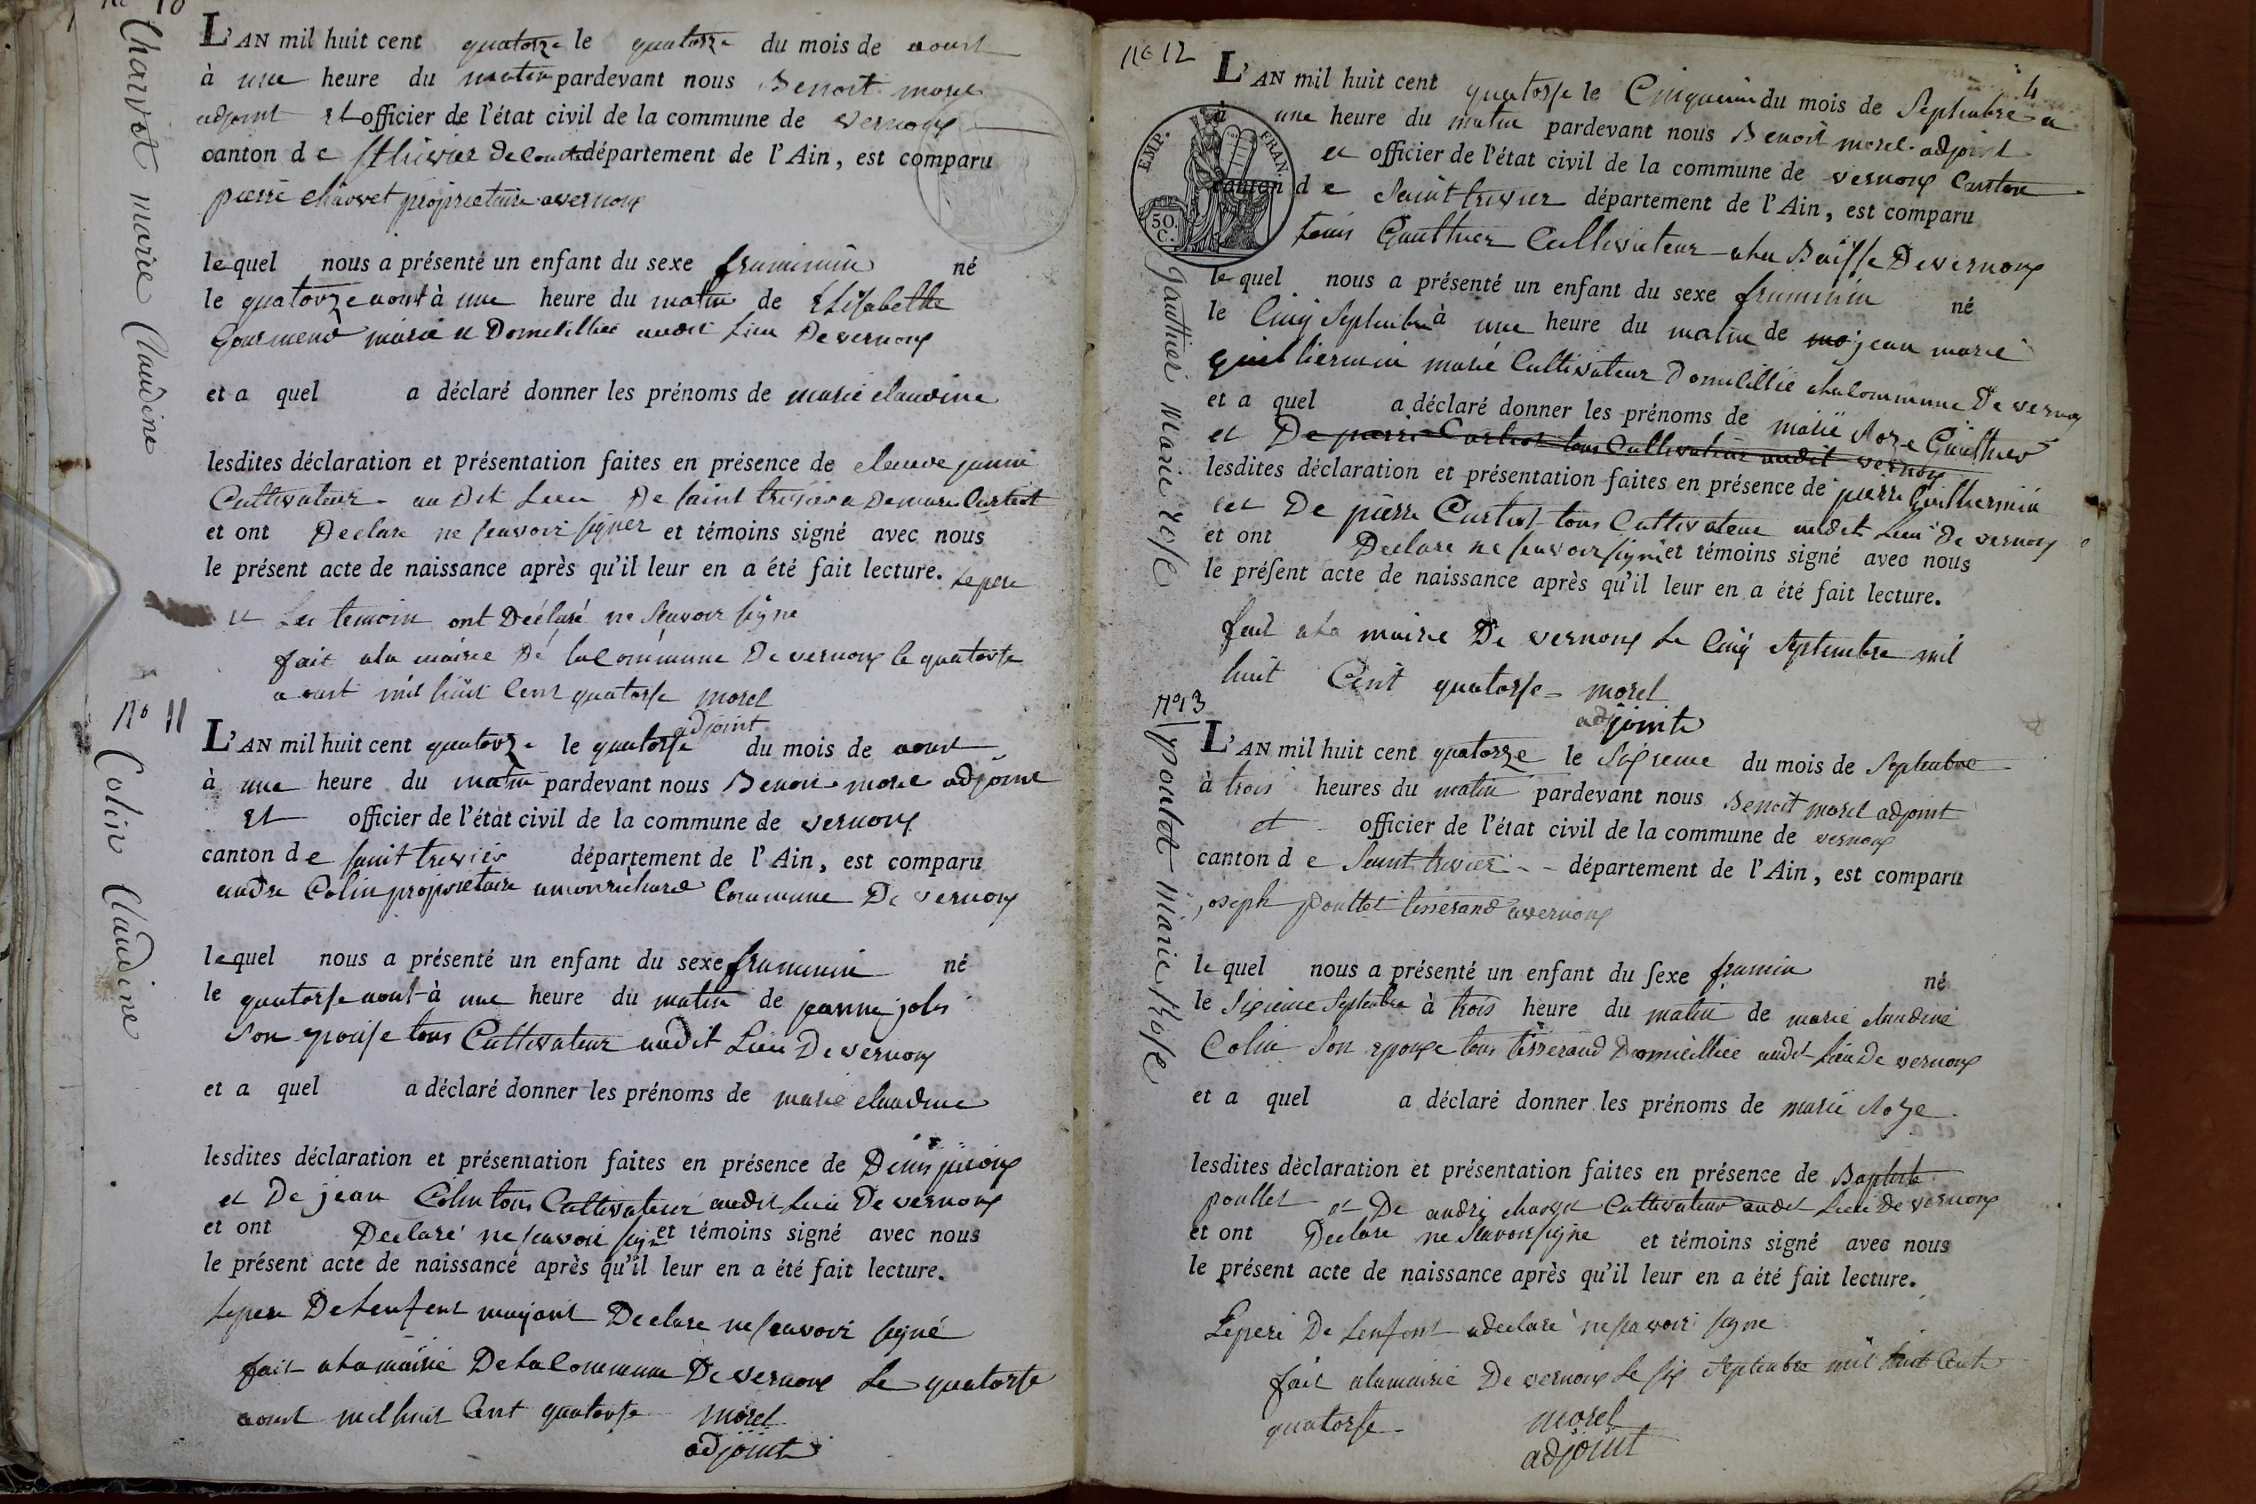 No 10
Charvet marie Claudine
L'AN mil huit cent quatorze le quatorze du mois de aoust
à une heure du matin pardevant nous Benoit morel
adjoint et officier de l'état civil de la commune de vernoux
canton de St trivier De Courtes département de l'Ain, est comparu
pierre charvet proprietaire a vernoux
lequel nous a présenté un enfant du sexe feuminin né
le quatorze aout à une heure du matin de Elisabethe
Gourmend marié et Domicilliée audit Lieu De vernoux
et a quel a déclaré donner les prénoms de marie claudine
lesdites déclaration et présentation faites en présence de claude
Cultivateur au Dit Lieu De saint trivier
et ont Declare ne scavoir signer et témoins signé avec nous
le présent acte de naissance après qu'il leur en a été fait lecture. Le pere
et Les temoin ont Déclaré ne Scavoir signe
fait a la mairie De la Commune De vernoux le quatorse
aoust mil huit Cent quatorse morel
adjoint
No 11
Colin Claudine
L'AN mil huit cent quatorze le quatorse du mois de aoust
à une heure du matin pardevant nous Benoit morel adjoint
et officier de l'état civil de la commune de vernoux
canton de saint trivier département de l'Ain, est comparu
andre Colin propriétaire a monrichard Commune De vernoux
lequel nous a présenté un enfant du sexe feuminin né
le quatorse aout à une heure du matin de jeanne joly
Son epouse tous Cultivateur audit Lieu De vernoux
et a quel a déclaré donner les prénoms de marie claudine
lesdites déclaration et présentation faites en présence de Denis
et De jean Colin tous Cultivateur audit Lieu De vernoux
et ont Declaré ne scavoir signe et témoins signé avec nous
le présent acte de naissance après qu'il leur en a été fait lecture.
Le pere De Lenfent Declare ne scavoir signé
fait a La mairie De La Commune De vernoux Le quatorse
aoust mil huit Cent quatorse morel
adjoint
4
No 12
EMP. FRAN
50. C.
Gauthier Marie rose
L'AN mil huit cent quatorse le Cinquieme du mois de Septembre a
à une heure du matin pardevant nous Benoit morel adjoint
et officier de l'état civil de la commune de vernoux Canton
canton de Saint trivier département de l'Ain, est comparu
Gauthier Cultivateur a La Baisse De vernoux
lequel nous a présenté un enfant du sexe feuminin né
le Cinq Septembre à une heure du matin de mo jean marie
guilliermin marié Cultivateur Domicillié a la Commune De vernoux
et a quel a déclaré donner les prénoms de marie Roze Gauthier
et De pierre Curtiot tous Cultivateur audit vernoux
lesdites déclaration et présentation faites en présence de pierre Guilliermin
et De pierre Curtiot tous Cultivateur audit Lieu De vernoux
et ont Declare ne scavoir signe et témoins signé avec nous
le présent acte de naissance après qu'il leur en a été fait lecture.
fait a La mairie De vernoux Le Cinq Septembre mil
huit Cent quatorse morel
adjoint
No 13
poulet Marie Rose
L'AN mil huit cent quatorze le Sixieme du mois de Septembre
à trois heures du matin pardevant nous Benoit morel adjoint
et officier de l'état civil de la commune de vernoux
canton de Saint trivier département de l'Ain, est comparu
joseph poullet tisserand a vernoux
lequel nous a présenté un enfant du sexe feumin né
le Sixieme Septembre à trois heure du matin de marie claudine
Colin Son epouse tous tisserand Domicilliée audit Lieu De vernoux
et a quel a déclaré donner les prénoms de marie Roze
lesdites déclaration et présentation faites en présence de Baptiste
poullet et De andré charvet Cultivateur audit Lieu De vernoux
et ont Declare ne Scavoir signe et témoins signé avec nous
le présent acte de naissance après qu'il leur en a été fait lecture.
Le pere De Lenfent a declaré ne scavoir signe
fait a la mairie De vernoux Le six Septembre mil huit Cent
quatorse morel
adjoint